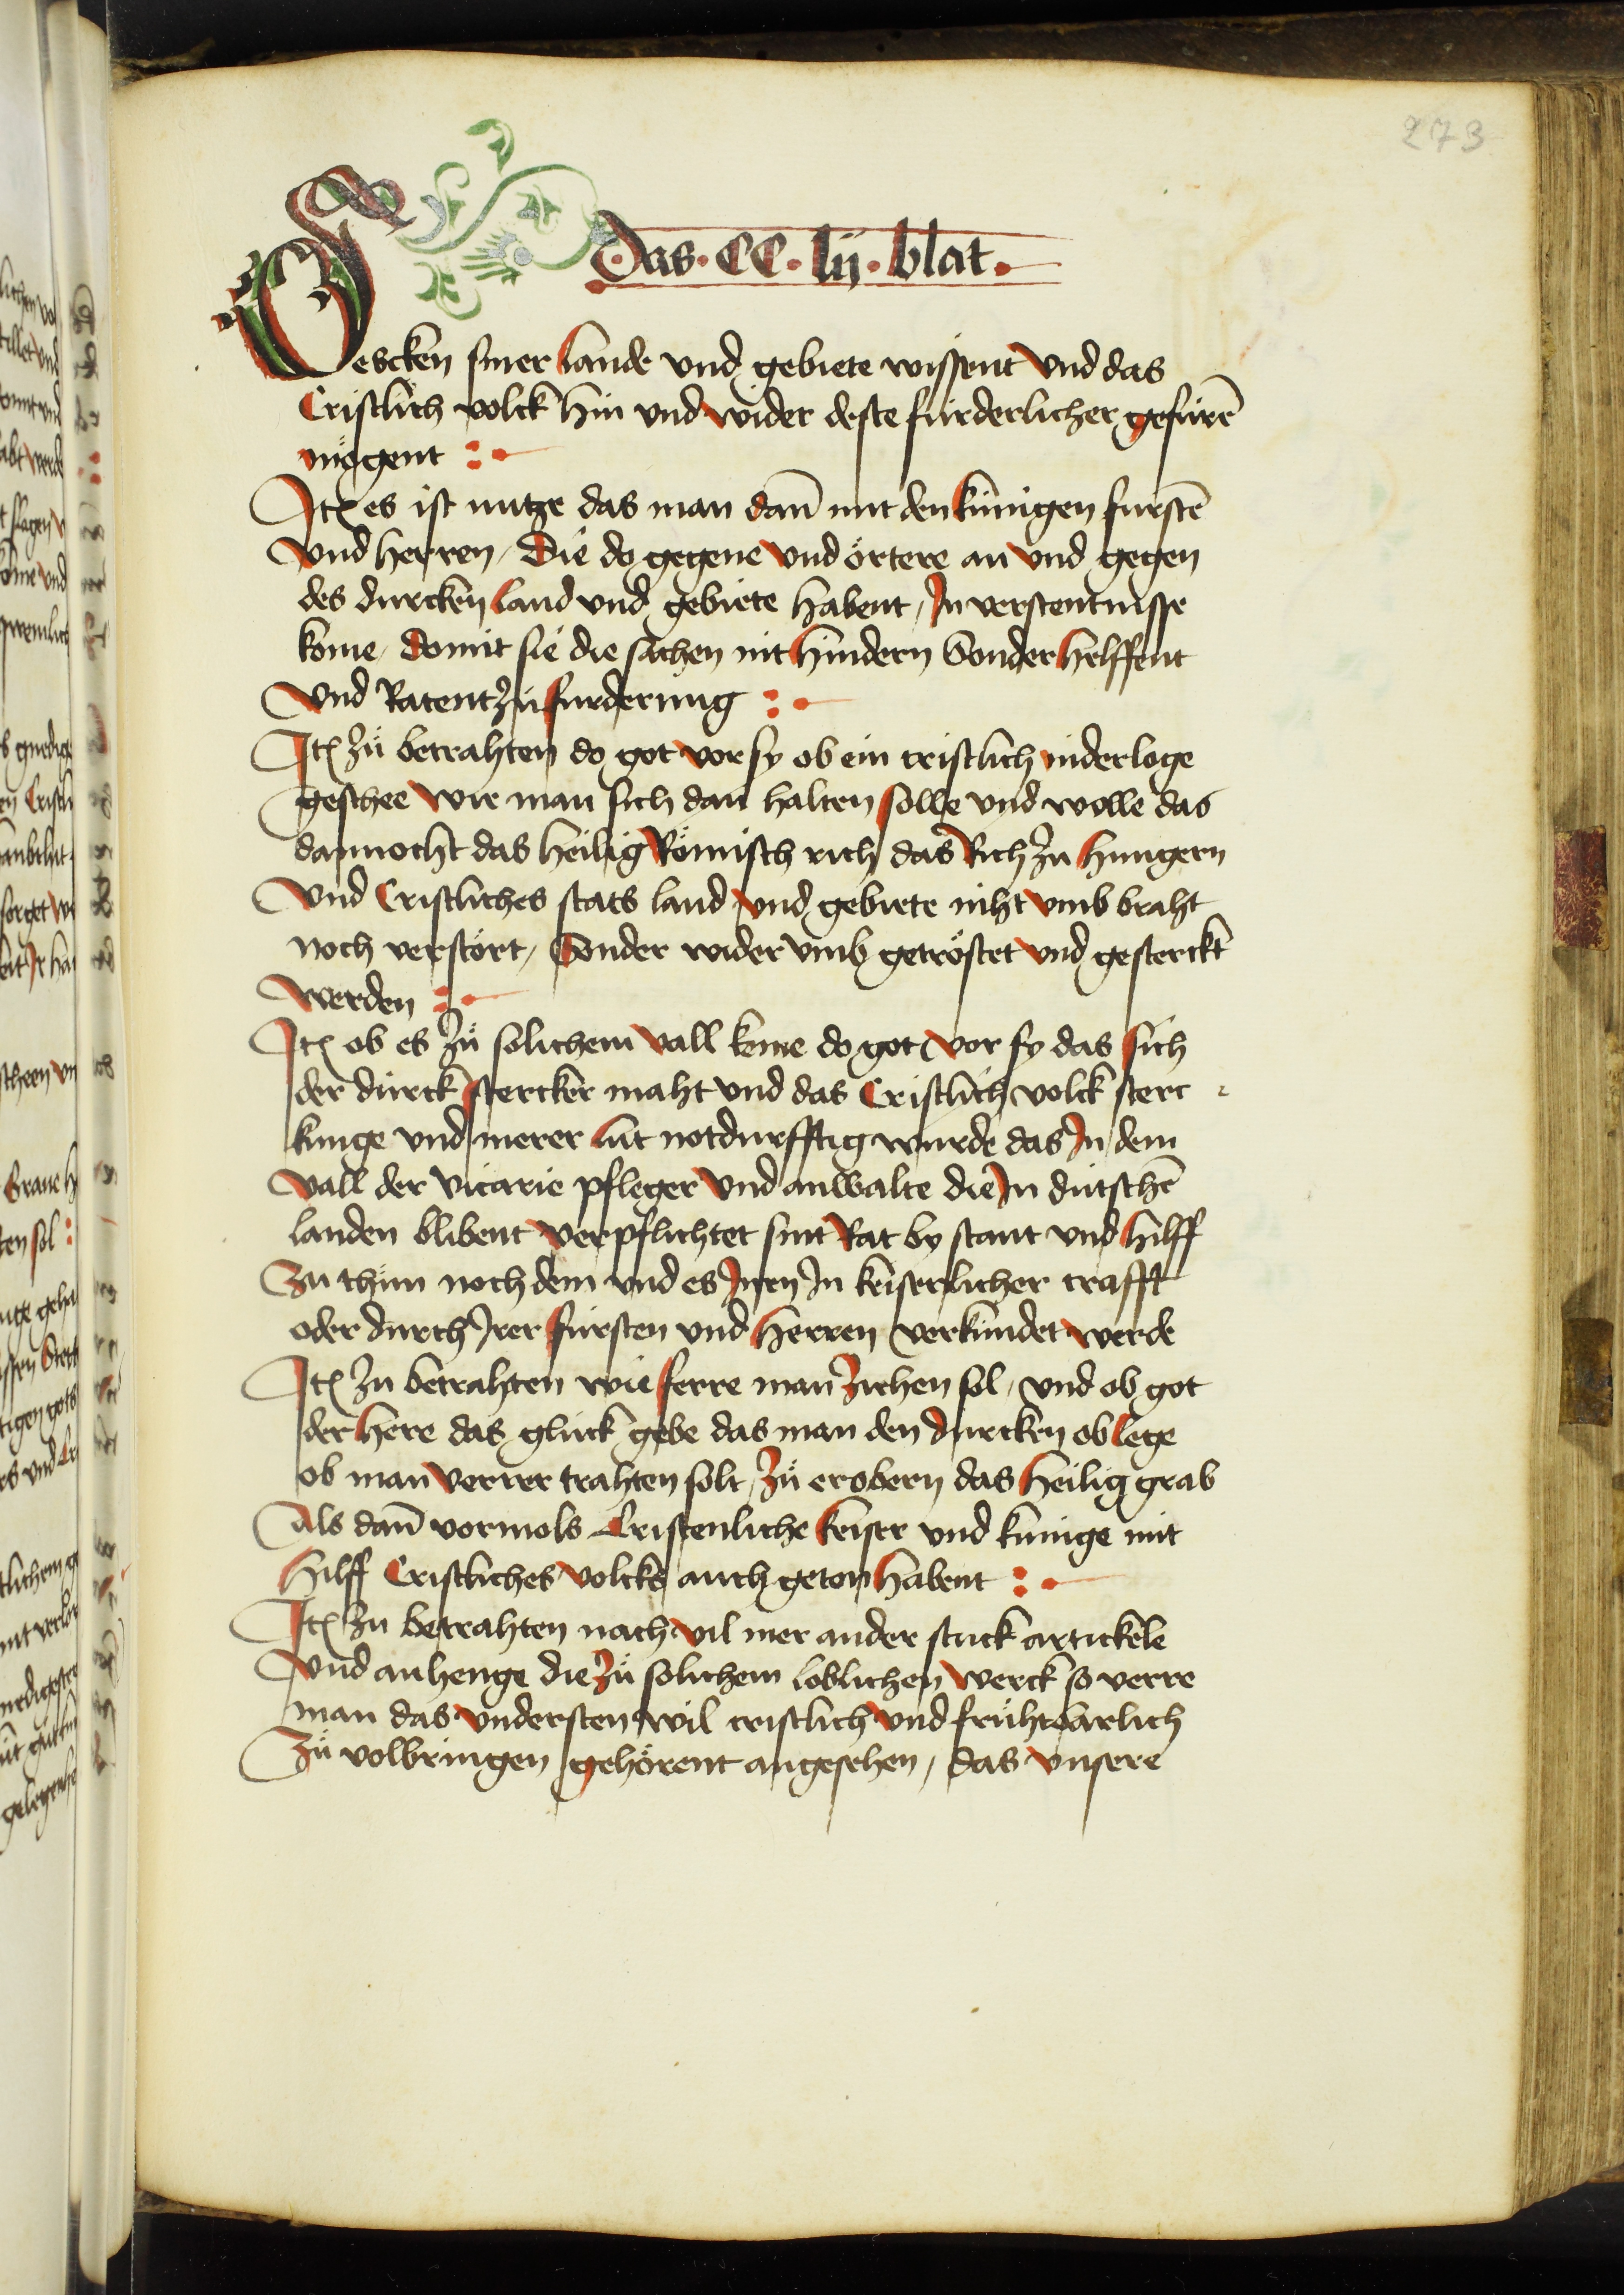 273
Das · CC · lij · blat ·
Gescken siner lande vnd gebiete wissent vnd das
Cristlich volck hin vnd wider deste fürderlicher gefürē
mögent
Itē es ist nutze das man dañ mit den künigen furstē
vnd herren / Die do gegene vnd örtere an vnd gegen
des durcken land vnd gebiete habent / In verstentnisse
kome / domit sie die sachen nit hindern Sonder helffent
vnd Ratent zü furderung
Itē zü betrahten do got vor sy ob ein cristlich niderloge
geschee wie man sich dan halten solle vnd wolle das
dannocht das heilig Römisch rich das Rich zu hungern
vnd Cristliches stats land vnd gebiete niht vmb braht
noch verstört / Sonder wider vmb getröstet vnd gesterckt
werden
Itē ob es zü solichem vall keme do got vor sy das sich
der dürck stercker maht vnd das Cristlich volck sterc
kunge vnd merer lüt notdurfftig wurde das In dem
vall der vicarie pfleger vnd anwalte die In dütschē
landen blibent verpflichtet sint Rat by stant vnd hilff
Zu thün noch dem vnd es Inen In keiserlicher crafft
oder durch Irer fürsten vnd herren verkündet werde
Itē zu betrahten wie ferre man ziehen sol / vnd ob got
der here das glück gebe das man den durcken ob lege
ob man verrer trahten solt / zü erobern das heilig grab
Als dañ vormols Cristenliche keiser vnd künige mit
hilff Cristliches volcks auch geton habent
Itē zu betrahten nach vil mer ander stuck artickele
vnd anhenge die zü solichem loblichen werck so verre
man das vndersten wil cristlich vnd früht barlich
Zü volbringen gehörent angesehen / das vnsere